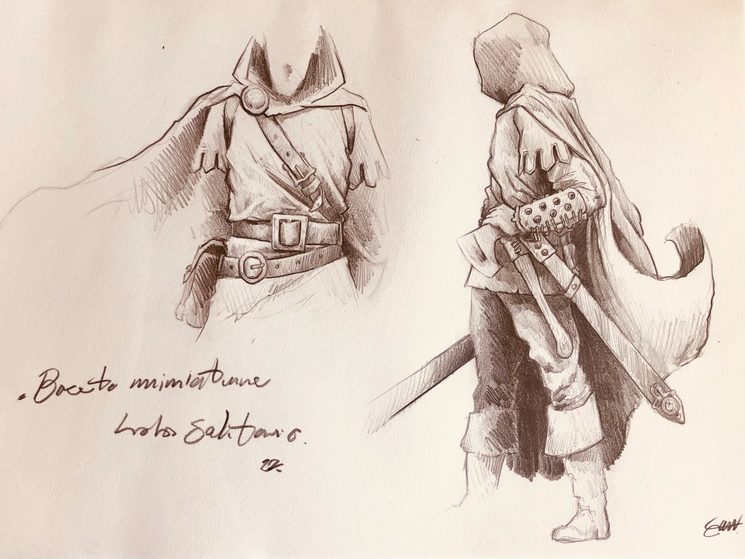 . Boceto miniature
Lobo Solitario.